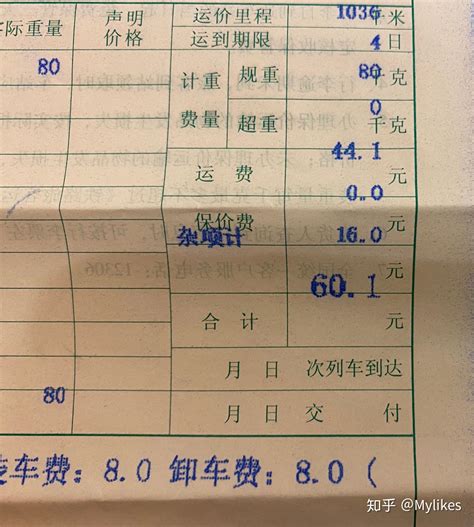 际重量 声明 运价里程 1036 千米
价格 运到期限 4 日
80 计重 规重 80 千克
费量 超重 0 千克
44.1
运 费 元
0.0
保价费 元
杂项计 16.0
60.1
合 计 元
月 日 次列车到达
80
月 日 交 付
装车费: 8.0 卸车费: 8.0 (
知乎 @Mylikes